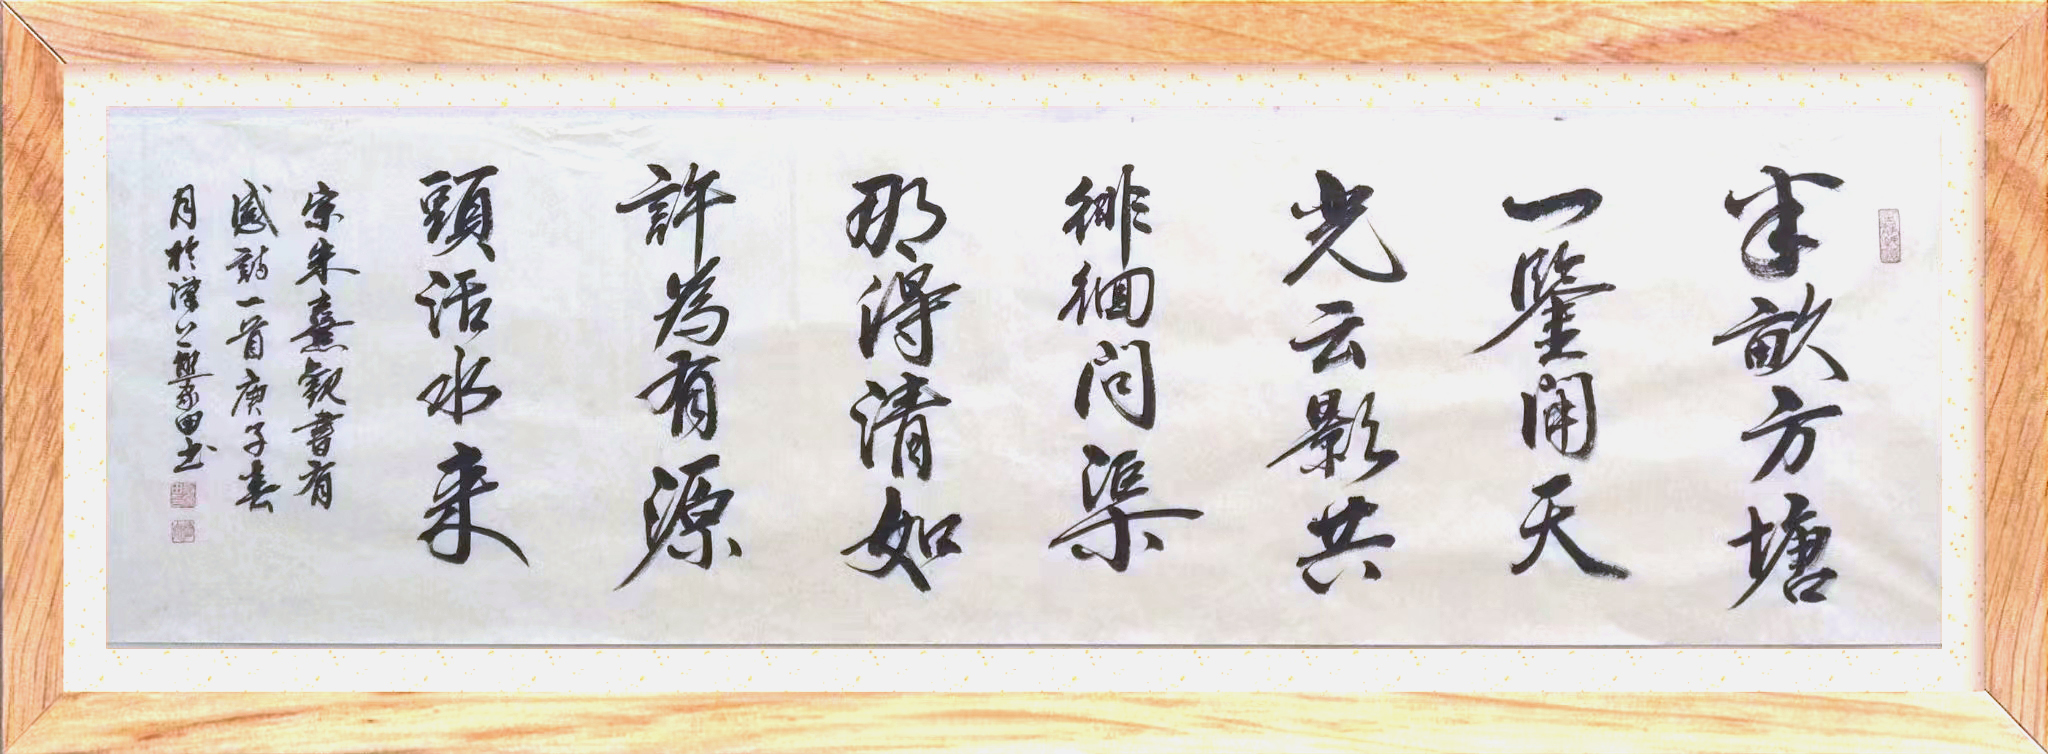 半畝方塘
一鑒開天
光云影共
徘徊问渠
那得清如
許為有源
頭活水来
宋朱熹觀書有
感詩一首庚子春
月於漢上
田书